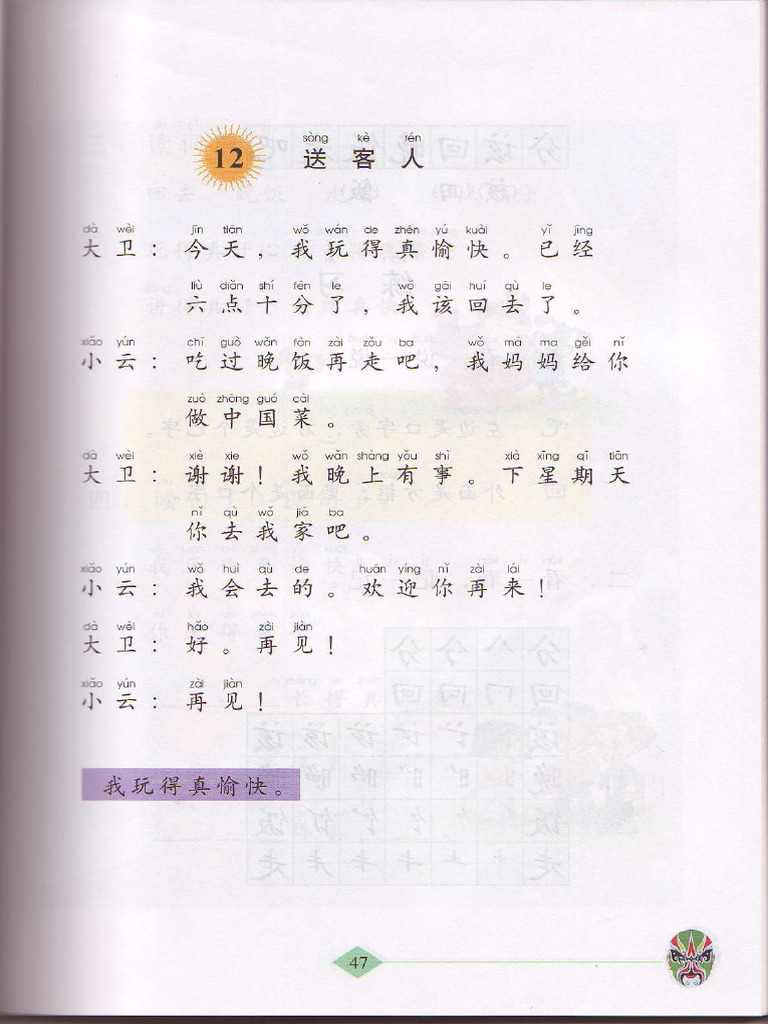 sòng kè rén
12 送客人
dà wèi jīn tiān wǒ wán de zhēn yú kuài yǐ jīng
大卫：今天，我玩得真愉快。已经
liù diǎn shí fēn le wǒ gāi huí qù le
六点十分了，我该回去了。
xiǎo yún chī guò wǎn fàn zài zǒu ba wǒ mā ma gěi nǐ
小云：吃过晚饭再走吧，我妈妈给你
zuò zhōng guó cài
做中国菜。
dà wèi xiè xie wǒ wǎn shàng yǒu shì xià xīng qī tiān
大卫：谢谢！我晚上有事。下星期天
nǐ qù wǒ jiā ba
你去我家吧。
xiǎo yún wǒ huì qù de huān yíng nǐ zài lái
小云：我会去的。欢迎你再来！
dà wèi hǎo zài jiàn
大卫：好。再见！
xiǎo yún zài jiàn
小云：再见！
我玩得真愉快。
47